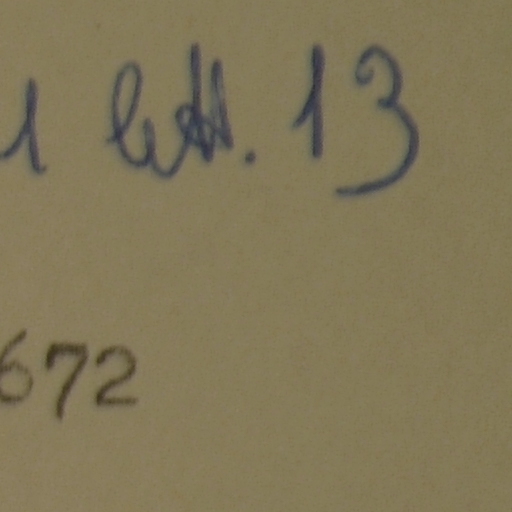 1 lett. 13
672